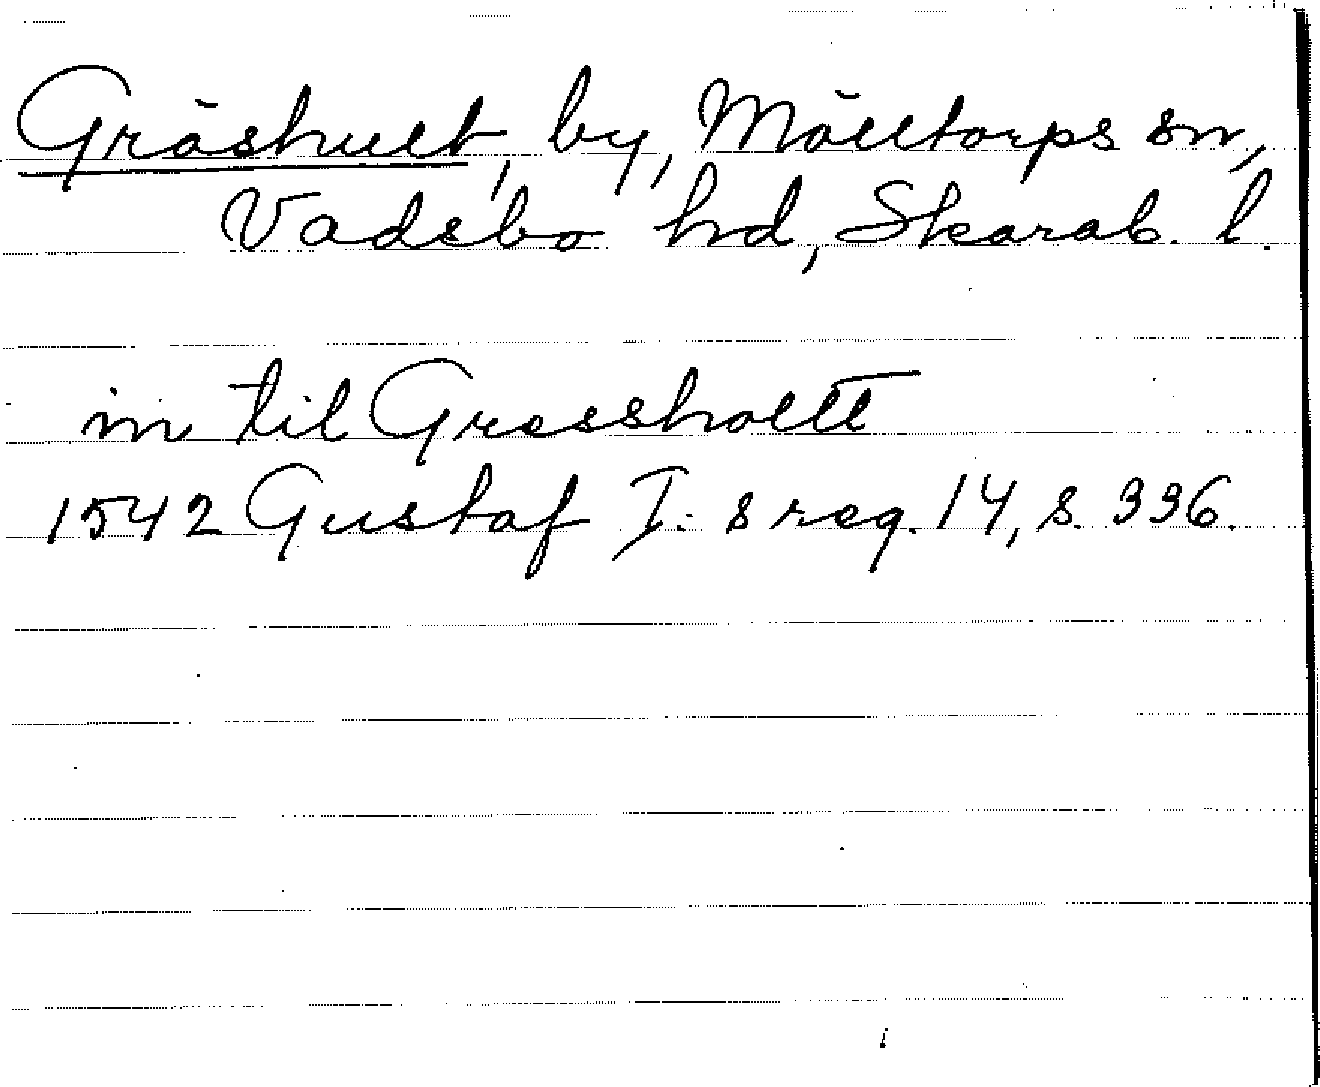 Gräshult, by, Mölltorps sn,
Vadsbo hrd, Skarab. l.
in til Gressholtt
1542 Gustaf I:s reg. 14, s. 336.